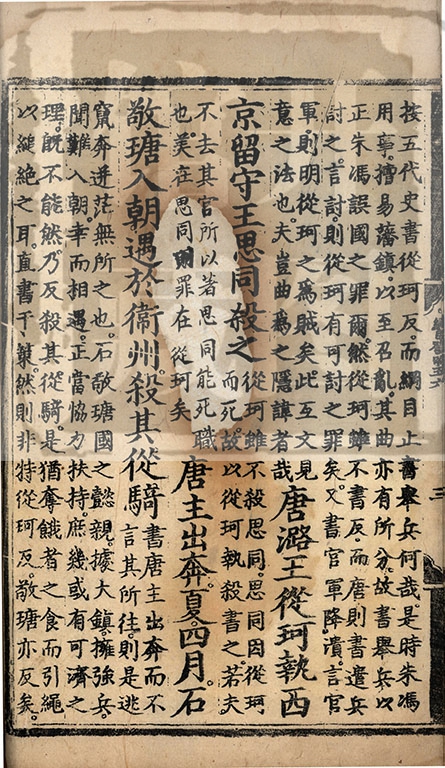 按五代史書從珂反而綱目止書舉兵何哉是時朱馮
用事擅易藩鎮以至召亂其曲亦有所分故書舉兵以
正朱馮誤國之罪爾然從珂雖不書反而唐則書遣兵
討之言討則從珂有可討之罪矣又書官軍降潰言官
軍則明從珂之為賊矣此互文見
意之法也夫豈曲為之隱諱者哉
唐潞王從珂執西
京留守王思同殺之
從珂雖不殺思同思同因從珂
而死故以從珂執殺書之若夫
不去其官所以著思同能死職
也美在思同罪在從珂矣
唐主出奔夏四月石
敬瑭入朝遇於衞州殺其從騎
書唐主出奔而不
言其所往則是逃
竄奔迸茫無所之也石敬瑭國之懿親據大鎮擁強兵
聞難入朝幸而相遇正當協力扶持庶幾或有可濟之
理既不能然乃反殺其從騎是猶奪餓者之食而引繩
以縋絕之耳直書于策然則非特從珂反敬瑭亦反矣
三